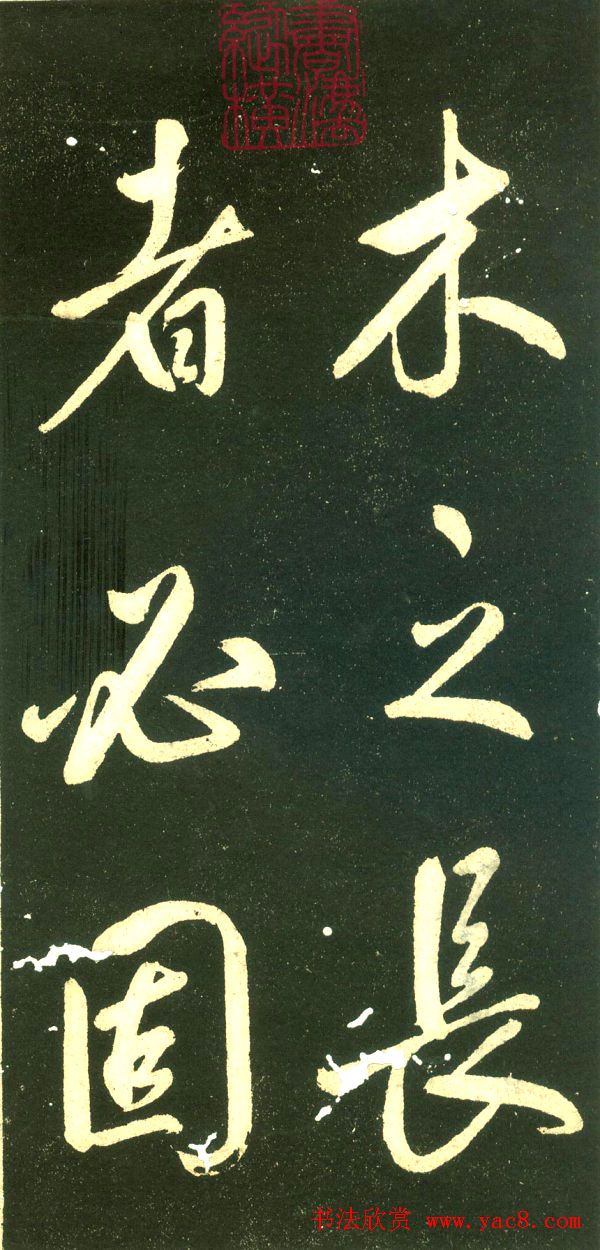 木之長
者必固
书法欣赏 www.yac8.com